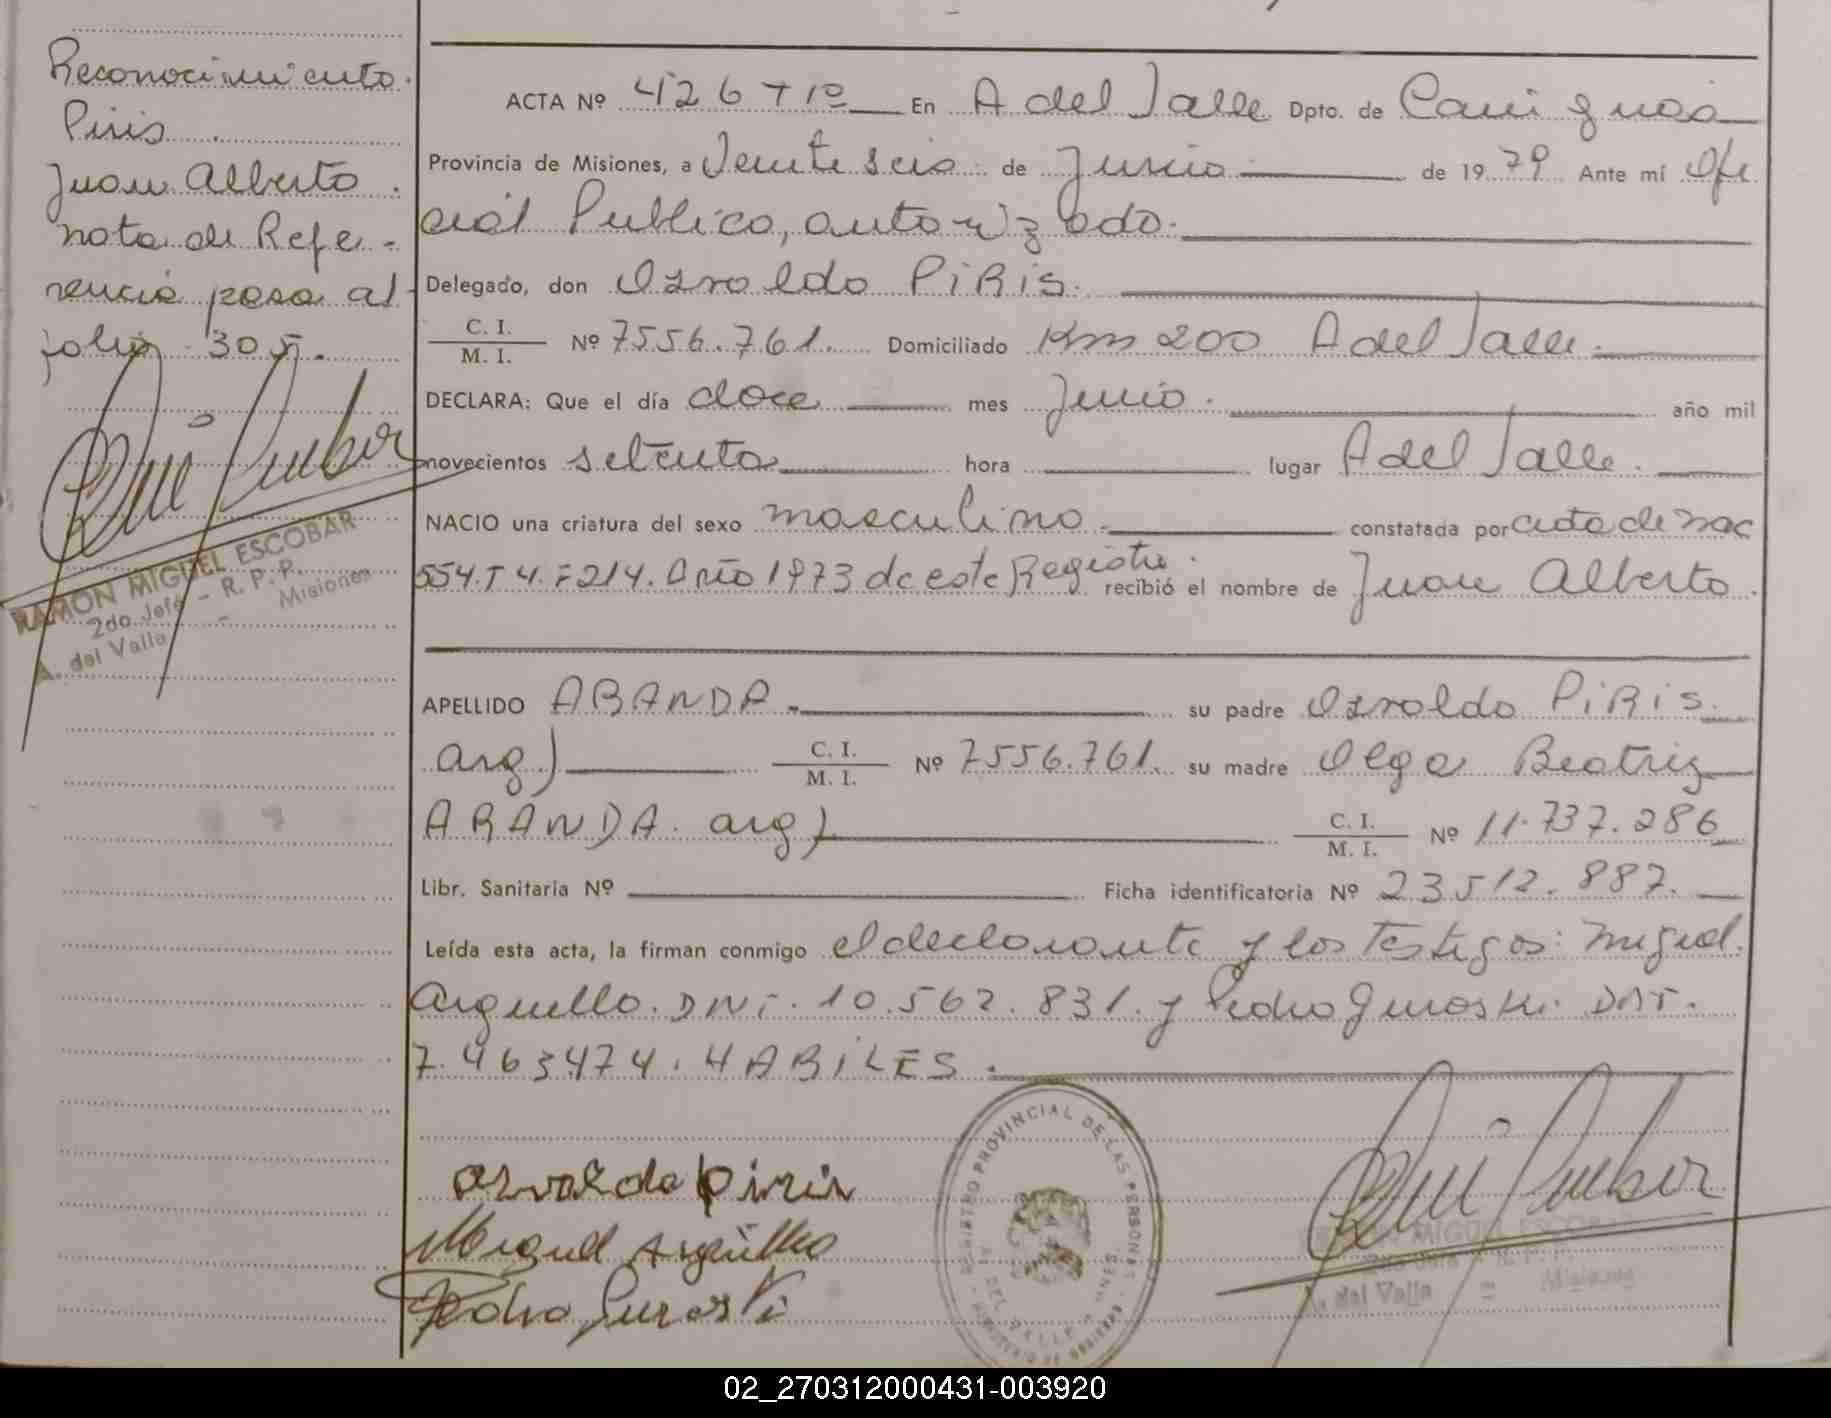 Reconocimiento.
Piris.
Juan Alberto.
nota de Refe-
rencia pasa al
folio 305.
RAMON MIGUEL ESCOBAR
2do. Jefe - R. P. P.
A. del Valle - Misiones
ACTA Nº 426 T 1º En A del Valle Dpto. de Cainguas
Provincia de Misiones, a Veinte seis de Junio de 1979 Ante mí Ofi
cial Publico, autorizado.
Delegado, don Osvaldo PIRIS.
C. I. / M. I. Nº 7556.761. Domiciliado Km 200 A del Valle.
DECLARA: Que el día doce mes Junio. año mil
novecientos setenta hora lugar A del Valle.
NACIO una criatura del sexo masculino. constatada por acta de nac
554.T 4.F 214. Año 1973 de este Registro. recibió el nombre de Juan Alberto.
APELLIDO ARANDA. su padre Osvaldo PIRIS.
arg) C. I. / M. I. Nº 7556.761. su madre Olga Beatriz
ARANDA. arg) C. I. / M. I. Nº 11.737.286
Libr. Sanitaria Nº Ficha identificatoria Nº 23512.887.
Leída esta acta, la firman conmigo el declarante y los Testigos: Miguel.
Arguello. DNI. 10.562.831. y Pedro Guroski. DNI.
7.463474. HABILES.
osvaldo piris
Miguel Argüello
Pedro Guroski
REGISTRO PROVINCIAL DE LAS PERSONAS
DEL VALLE
MIGUEL ESCOBAR
A. del Valle = Misiones
02_270312000431-003920